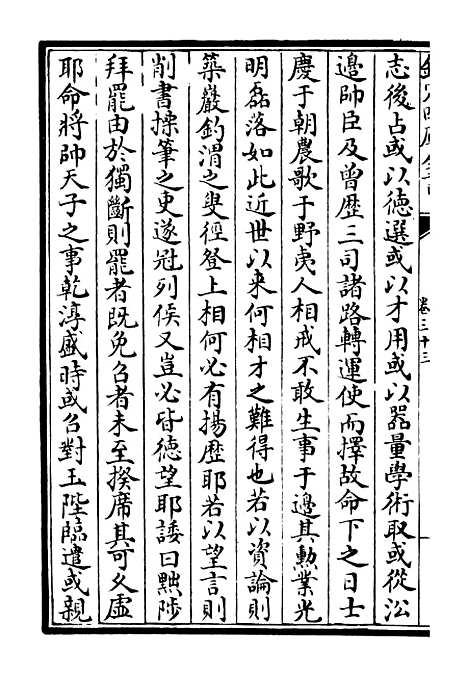 欽定四庫全書
卷三十三
志後占或以德選或以才用或以器量學術取或從㳂
邊帥臣及曾歴三司諸路轉運使而擇故命下之日士
慶于朝農歌于野夷人相戒不敢生事于邊其勲業光
明磊落如此近世以來何相才之難得也若以資論則
築巖釣渭之叟徑登上相何必有揚歴耶若以望言則
削書操筆之吏遂冠列侯又豈必皆德望耶諉曰黜陟
拜罷由於獨斷則罷者既免召者未至揆席其可久虛
耶命將帥天子之事乾淳盛時或召對玉陛臨遣或親